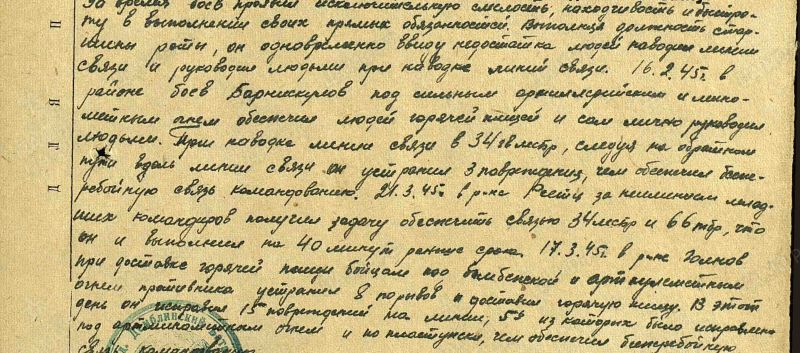 За время боев проявил исключительную смелость, находчивость и быстро-
ту в выполнении своих прямых обязанностей. Выполняя должность стар-
шины роты, он одновременно ввиду недостатка людей наводил линии
связи и руководил людьми при наводке линий связи. 16.2.45г. в
районе боев Барнискунов под сильным артиллерийским и мино-
метным огнем обеспечил людей горячей пищей и сам лично руководил
людьми. При наводке линии связи в 34 гв мсбр, следуя на обратном
пути вдоль линии связи он устранил 3 повреждения, чем обеспечил беспе-
ребойную связь командованию. 21.3.45г. в р-не за неимением млад-
ших командиров получил задачу обеспечить связью 34 мсбр и 66 тбр, что
он и выполнил на 40 минут раньше срока. 17.3.45г. в р-не
при доставке горячей пищи бойцам под бомбежкой и артпулеметным
огнем противника устранил 8 порывов и доставил горячую пищу. В этот
день он исправил 15 повреждений на линии, 5 из которых было исправлено
под артминометным огнем и по пластунски, чем обеспечил бесперебойную
связь
Д Л Я П